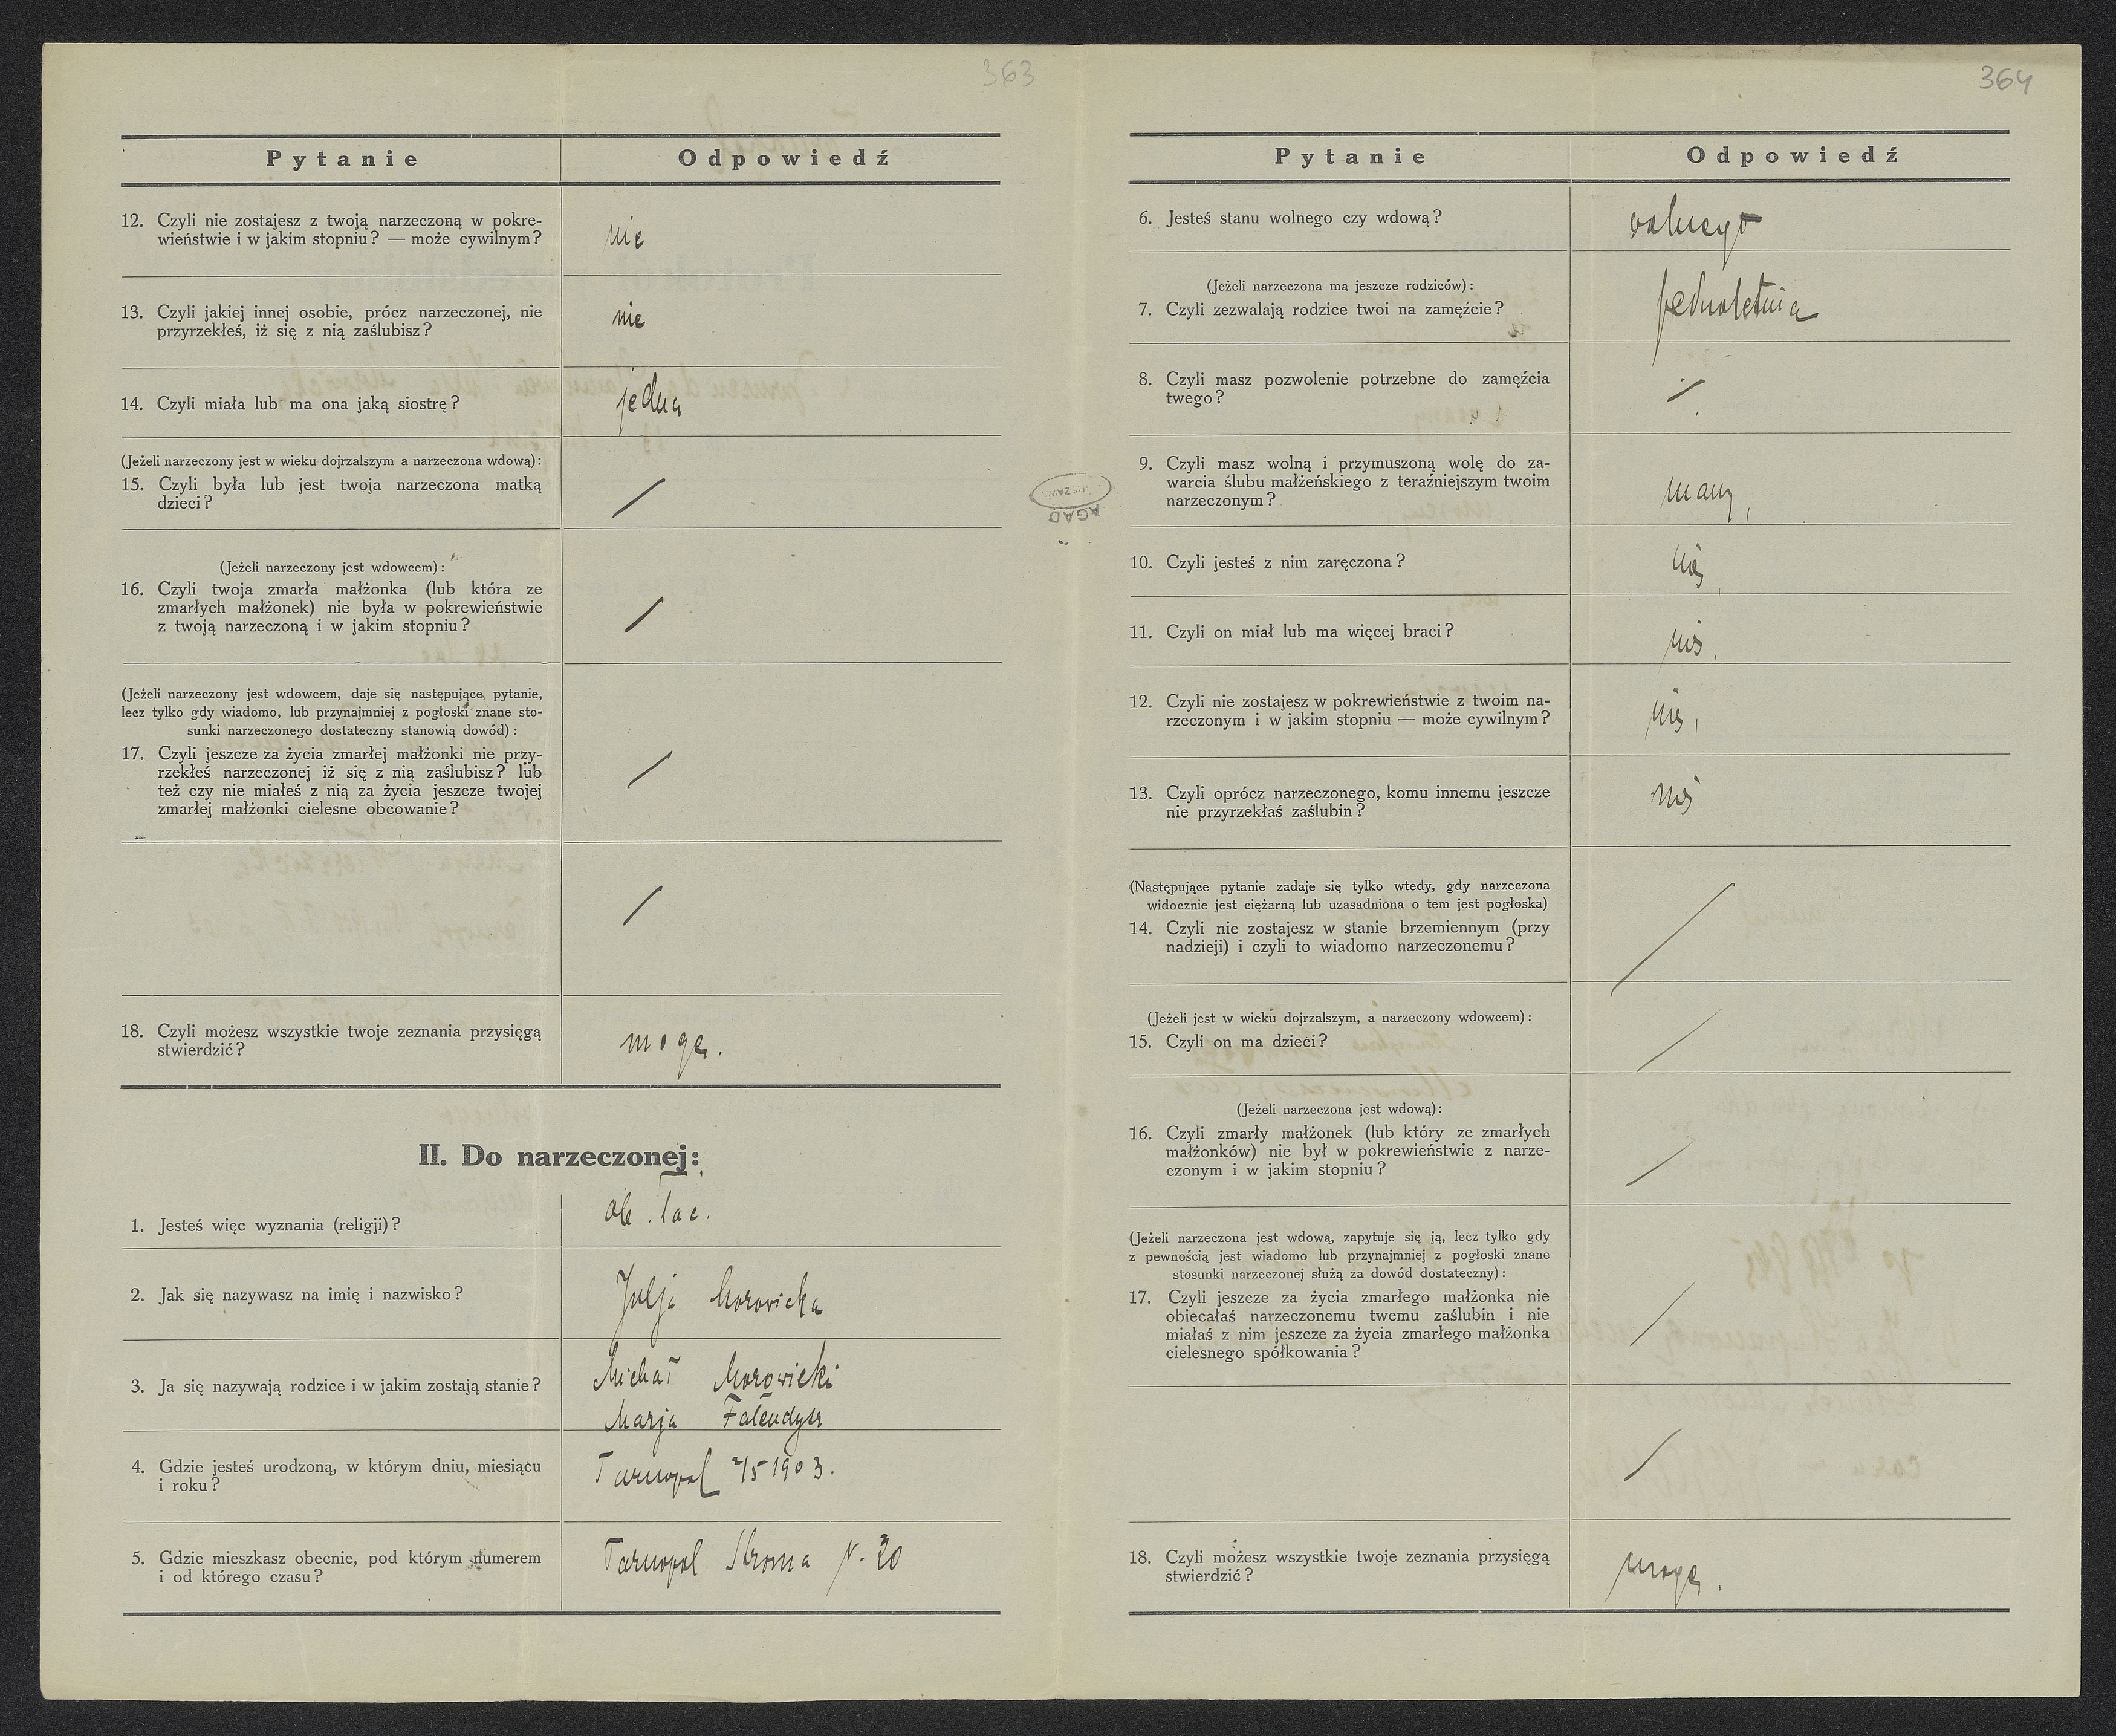 363
Pytanie Odpowiedź
12. Czyli nie zostajesz z twoją narzeczoną w pokre-
wieństwie i w jakim stopniu? — może cywilnym?
nie
13. Czyli jakiej innej osobie, prócz narzeczonej, nie
przyrzekłeś, iż się z nią zaślubisz?
nie
14. Czyli miała lub ma ona jaką siostrę?
jedną
(Jeżeli narzeczony jest w wieku dojrzalszym a narzeczona wdową):
15. Czyli była lub jest twoja narzeczona matką
dzieci?
(Jeżeli narzeczony jest wdowcem):
16. Czyli twoja zmarła małżonka (lub która ze
zmarłych małżonek) nie była w pokrewieństwie
z twoją narzeczoną i w jakim stopniu?
(Jeżeli narzeczony jest wdowcem, daje się następujące pytanie,
lecz tylko gdy wiadomo, lub przynajmniej z pogłoski znane sto-
sunki narzeczonego dostateczny stanowią dowód):
17. Czyli jeszcze za życia zmarłej małżonki nie przy-
rzekłeś narzeczonej iż się z nią zaślubisz? lub
też czy nie miałeś z nią za życia jeszcze twojej
zmarłej małżonki cielesne obcowanie?
18. Czyli możesz wszystkie twoje zeznania przysięgą
stwierdzić?
mogę.
II. Do narzeczonej:
1. Jesteś więc wyznania (religji)?
ob. łac.
2. Jak się nazywasz na imię i nazwisko?
Julja Morowicka
3. Ja się nazywają rodzice i w jakim zostają stanie?
Michał Morowicki
Marja Falendysz
4. Gdzie jesteś urodzoną, w którym dniu, miesiącu
i roku?
Tarnopol 2/5 1903.
5. Gdzie mieszkasz obecnie, pod którym numerem
i od którego czasu?
Tarnopol Stroma N. 20
364
Pytanie Odpowiedź
6. Jesteś stanu wolnego czy wdową?
wolnego
(Jeżeli narzeczona ma jeszcze rodziców):
7. Czyli zezwalają rodzice twoi na zamęźcie?
pełnoletnia
8. Czyli masz pozwolenie potrzebne do zamęźcia
twego?
9. Czyli masz wolną i przymuszoną wolę do za-
warcia ślubu małżeńskiego z teraźniejszym twoim
narzeczonym?
mam,
10. Czyli jesteś z nim zaręczona?
nie,
11. Czyli on miał lub ma więcej braci?
nie.
12. Czyli nie zostajesz w pokrewieństwie z twoim na-
rzeczonym i w jakim stopniu — może cywilnym?
nie,
13. Czyli oprócz narzeczonego, komu innemu jeszcze
nie przyrzekłaś zaślubin?
nie
(Następujące pytanie zadaje się tylko wtedy, gdy narzeczona
widocznie jest ciężarną lub uzasadniona o tem jest pogłoska)
14. Czyli nie zostajesz w stanie brzemiennym (przy
nadzieji) i czyli to wiadomo narzeczonemu?
(Jeżeli jest w wieku dojrzalszym, a narzeczony wdowcem):
15. Czyli on ma dzieci?
(Jeżeli narzeczona jest wdową):
16. Czyli zmarły małżonek (lub który ze zmarłych
małżonków) nie był w pokrewieństwie z narze-
czonym i w jakim stopniu?
(Jeżeli narzeczona jest wdową, zapytuje się ją, lecz tylko gdy
z pewnością jest wiadomo lub przynajmniej z pogłoski znane
stosunki narzeczonej służą za dowód dostateczny):
17. Czyli jeszcze za życia zmarłego małżonka nie
obiecałaś narzeczonemu twemu zaślubin i nie
miałaś z nim jeszcze za życia zmarłego małżonka
cielesnego spółkowania?
18. Czyli możesz wszystkie twoje zeznania przysięgą
stwierdzić?
mogę.
AGAD